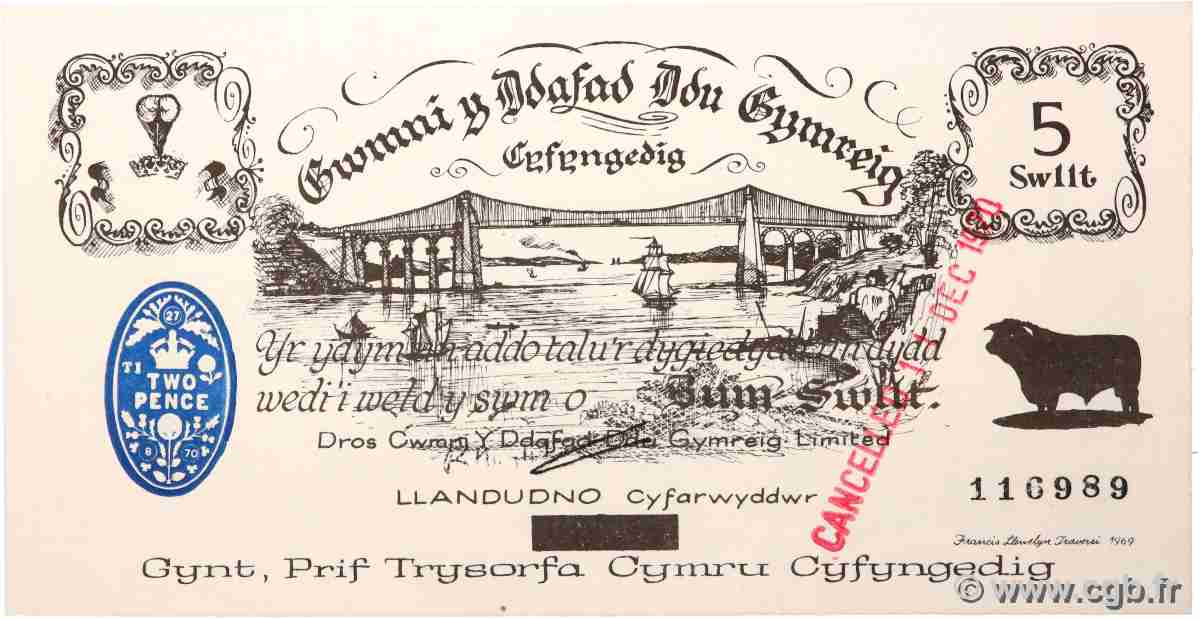 Cwmni y Ddafad Ddu Gymreig
Cyfyngedig
5
Swllt
27
T1
TWO
PENCE
8 70
Yr ydym yn addo talu'r dygiedydd dydd
wedi'i weld y swm o Swllt.
Dros Cwmni Y Ddafad Ddu Gymreig Limited
LLANDUDNO Cyfarwyddwr
CANCELLED DEC
116989
Francis Llewelyn 1969
Gynt, Prif Trysorfa Cymru Cyfyngedig
© www.cgb.fr